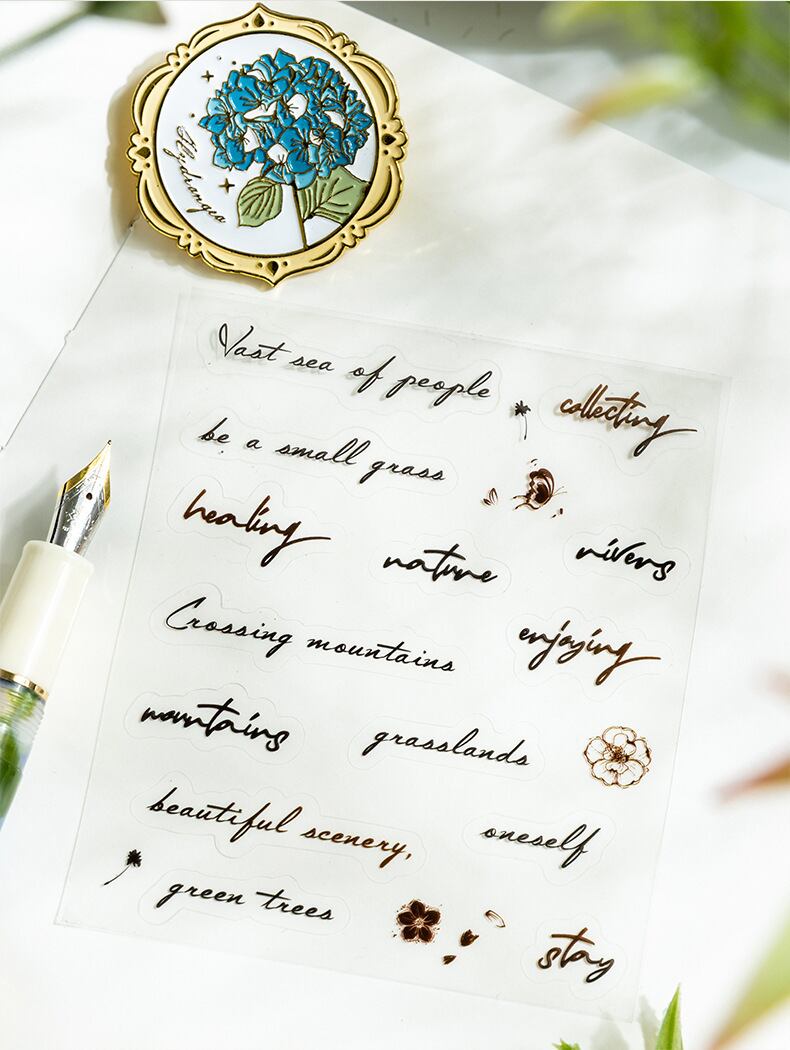 Hydrangea
Vast sea of people
collecting
be a small grass
healing
nature
rivers
Crossing mountains
enjoying
mountains
grasslands
beautiful scenery,
oneself
green trees
stay